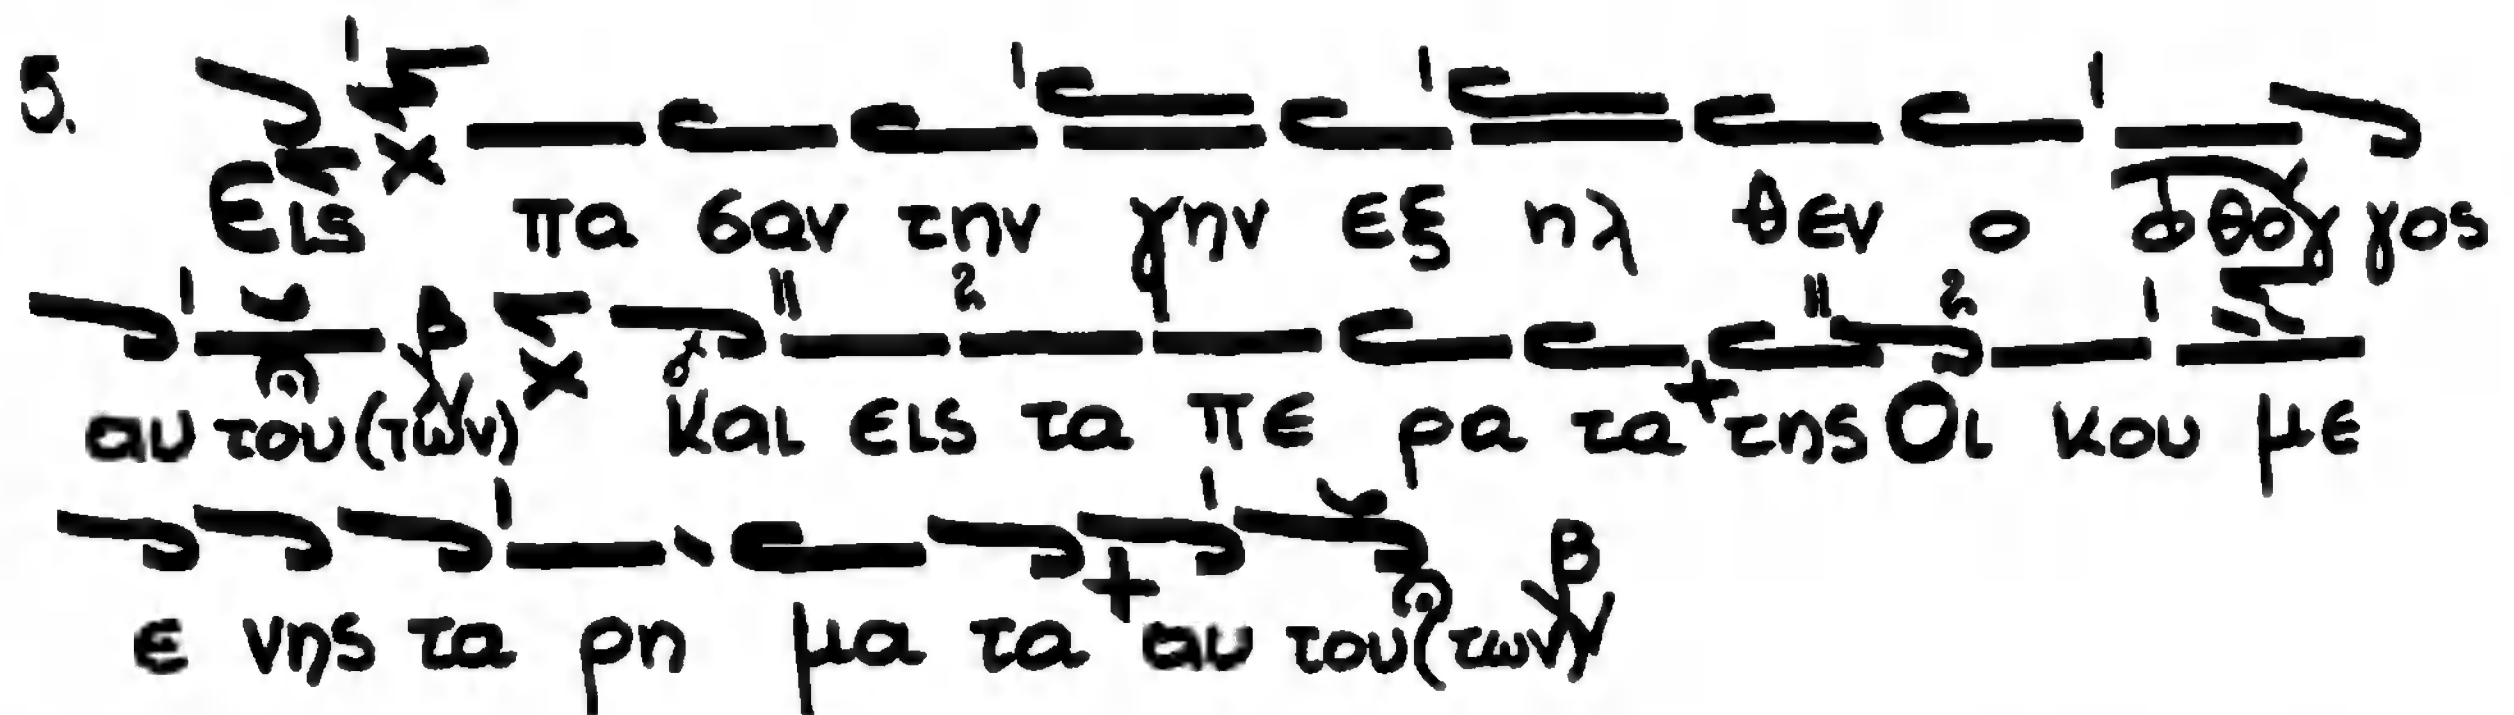 5. Εις πα σαν την γην εξ ηλ θεν ο φθογ γος
αυ του (των) και εις τα πε ρα τα της Οι κου με
ε νης τα ρη μα τα αυ του (των)